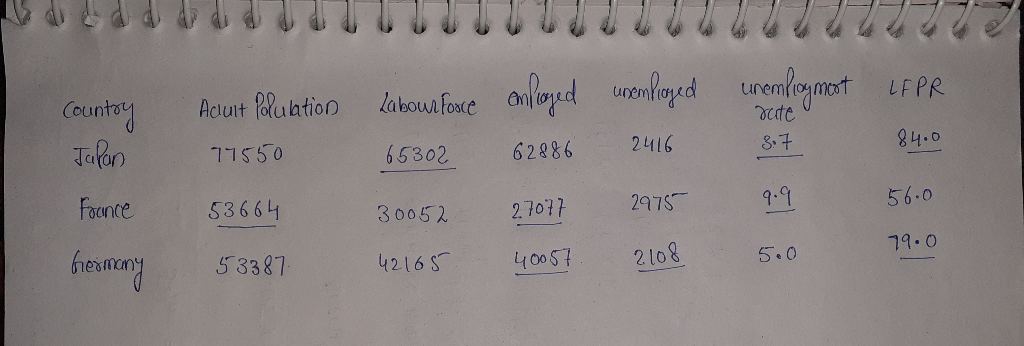 Country Adult Population Labour Force employed unemployed unemployment rate LFPR
Japan 77550 65302 62886 2416 3.7 84.0
France 53664 30052 27077 2975 9.9 56.0
Germany 53387 42165 40057 2108 5.0 79.0